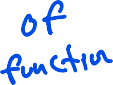 of
function